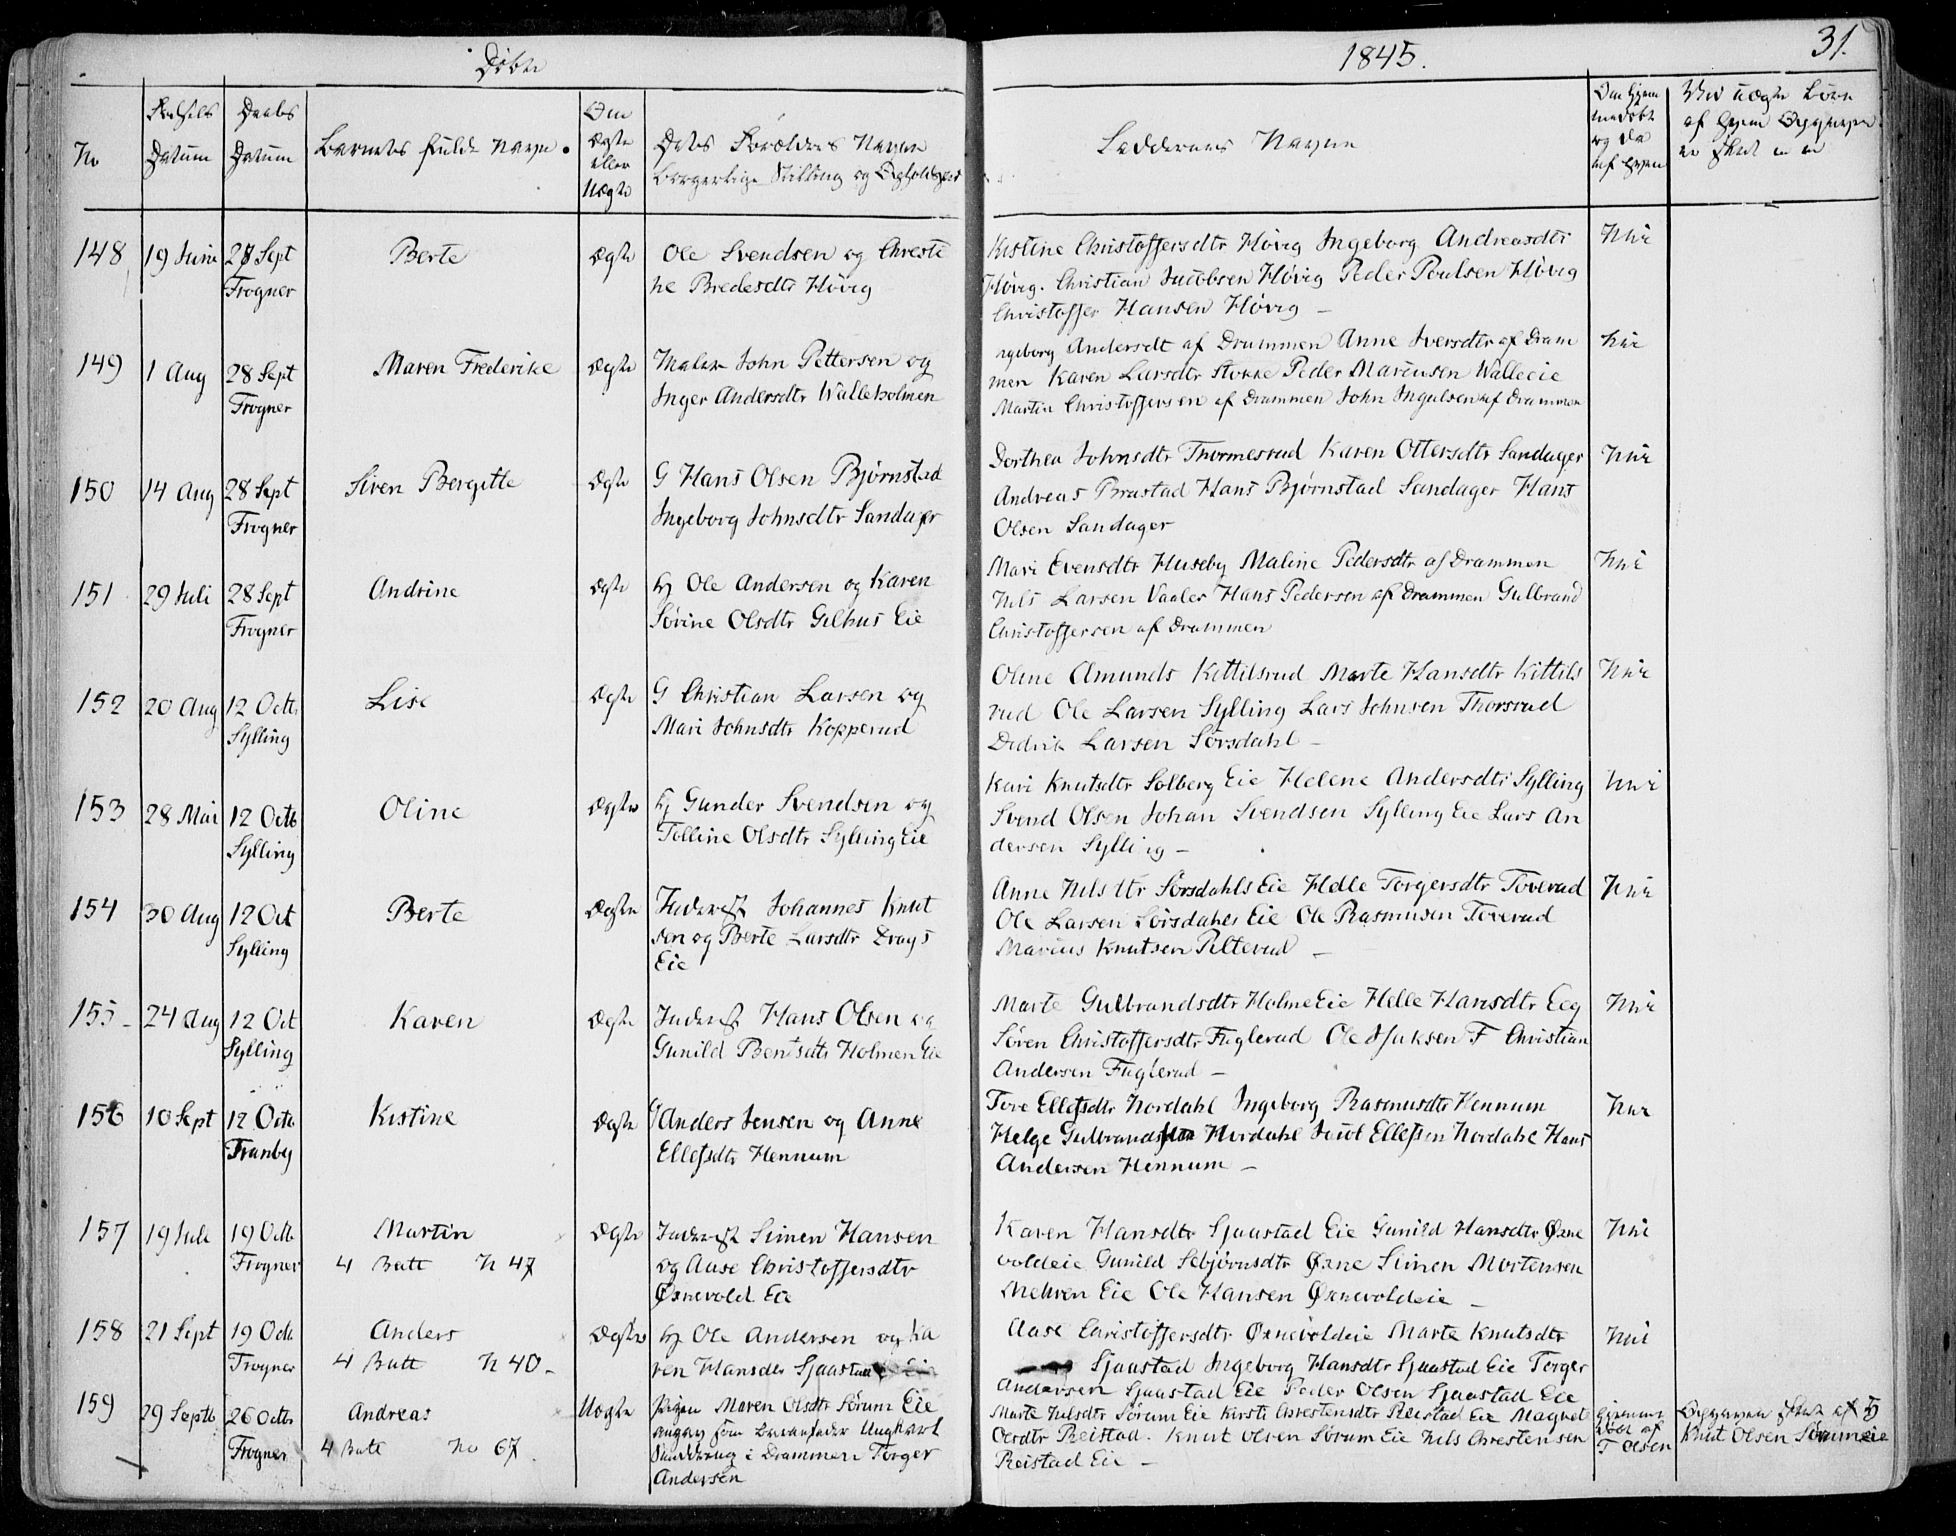 Døbte
1845.
31.
No
Fødsels Datum
Daabs Datum
Barnets fulde Navn.
Om Ægte eller Uægte
Dets Forældres Navne
borgerlige Stilling og Opholdssted
Faddernes Navne
Om hjemmedøbt og da af hvem
Ved uægte Børn
af hvem Opgivelsen
er skeet
148
19 Juni
28 Sept
Frogner
Berte
Ægte
Ole Svendsen og Christi
ne Bredesdtr Høvig
Kistine Christoffersdtr Høvig Ingeborg Andreasdtr
Høvig. Christian Jacobsen Høvig Peder Poulsen Høvig
Christoffer Hansen Høvig –
Nei
149
1 Aug
28 Sept
Frogner
Maren Frederike
Ægte
Maler John Pettersen og
Inger Andersdtr Walleholmen
Ingeborg Andersdt af Drammen Anne Iversdtr af Dram
men Karen Larsdtr Stokke Peder Mariusen Walleeie
Martin Christoffersen af Drammen John Ingulsen af Drammen
Nei
150
14 Aug
28 Sept
Frogner
Siren Bergitte
Ægte
G Hans Olsen Bjørnstad
Ingeborg Johnsdtr Sandager
Dorthea Johnsdtr Thormesrud Karen Ottersdtr Sandager
Andreas Brastad Hans Bjørnstad Sandager Hans
Olsen Sandager
Nei
151
29 Juli
28 Sept
Frogner
Andrine
Ægte
Hj Ole Andersen og Karen
Sørine Olsdtr Gilhus Eie
Mari Evensdtr Huseby Maline Pedersdtr af Drammen
Nils Larsen Vaaler Hans Pedersen af Drammen Gulbrand
Christoffersen af Drammen
Nei
152
20 Aug
12 Octb
Sylling
Lise
Ægte
G Christian Larsen og
Mari Johnsdtr Kopperud
Oline Amunds Kittilsrud Marte Hansdtr Kittils
rud Ole Larsen Sylling Lars Johnsen Thorsrud
Didrik Larsen Sørsdahl –
Nei
153
28 Mai
12 Octb
Sylling
Oline
Ægte
Hj Gunder Svendsen og
Telline Olsdtr Sylling Eie
Kari Knutsdtr Solberg Eie Helene Andersdtr Sylling
Svend Olsen Johan Svendsen Sylling Eie Lars An
dersen Sylling –
Nei
154
30 Aug
12 Oct
Sylling
Berte
Ægte
Inderst Johannes Knut
sen og Berte Larsdtr Drags
Eie
Anne Nilsdtr Sørsdahls Eie Helle Torgersdtr Toverud
Ole Larsen Sørsdahls Eie Ole Rasmusen Toverud
Marius Knutsen Pilterud –
Nei
155
24 Aug
12 Oct
Sylling
Karen
Ægte
Inderst Hans Olsen og
Gunild Bentsdtr Holmen Eie
Marte Gulbrandsdtr Holme Eie Helle Hansdtr Eeg
Søren Christoffersdtr Fuglerud Ole Isaksen F Christian
Andersen Fuglerud –
Nei
156
10 Sept
12 Octb
Tranby
Kistine
Ægte
G Anders Jensen og Anne
Ellefsdtr Hennum
Tore Ellefsdtr Nordahl Ingeborg Rasmusdtr Hennum
Helge Gulbrandsen Nordahl Jacob Ellefsen Nordahl Hans
Andersen Hennum –
Nei
157
19 Juli
19 Octb
Frogner
Martin
4 Batt N 47
Ægte
Inderst Simen Hansen
og Aase Christoffersdtr
Øxnevold Eie
Karen Hansdtr Sjaastad Eie Gunild Hansdtr Øxne
voldeie Gunild Sebjørnsdtr Øxne Simen Mortensen
Mehren Eie Ole Hansen Øxnevoldeie –
Nei
158
21 Sept
19 Octb
Frogner
Anders
4 Batt N 40 –
Ægte
Hj Ole Andersen og Ka
ren Hansdtr Sjaastad Eie
Aase Christoffersdtr Øxnevoldeie Marte Knutsdtr
Sjaastad Ingeborg Hansdtr Sjaastad Eie Torger
Andersen Sjaastad Eie Peder Olsen Sjaastad Eie
Nei
159
29 Septb
26 Octb
Frogner
Andreas
4 Batt No 67
Uægte
Pigen Maren Olsdtr Sørum Eie
angav som Barnefader Ungkarl
i Drammen Torger
Andersen
Marte Nilsdtr Sørum Eie Kirsti Christensdtr Reistad Eie Magnet
Oersdtr Reistad. Knut Olsen Sørum Eie Nils Christensen
Reistad Eie –
hjemme
døbt af
T Olsen
Opgivelsen skeet af Hj
Knut Olsen Sørumeie